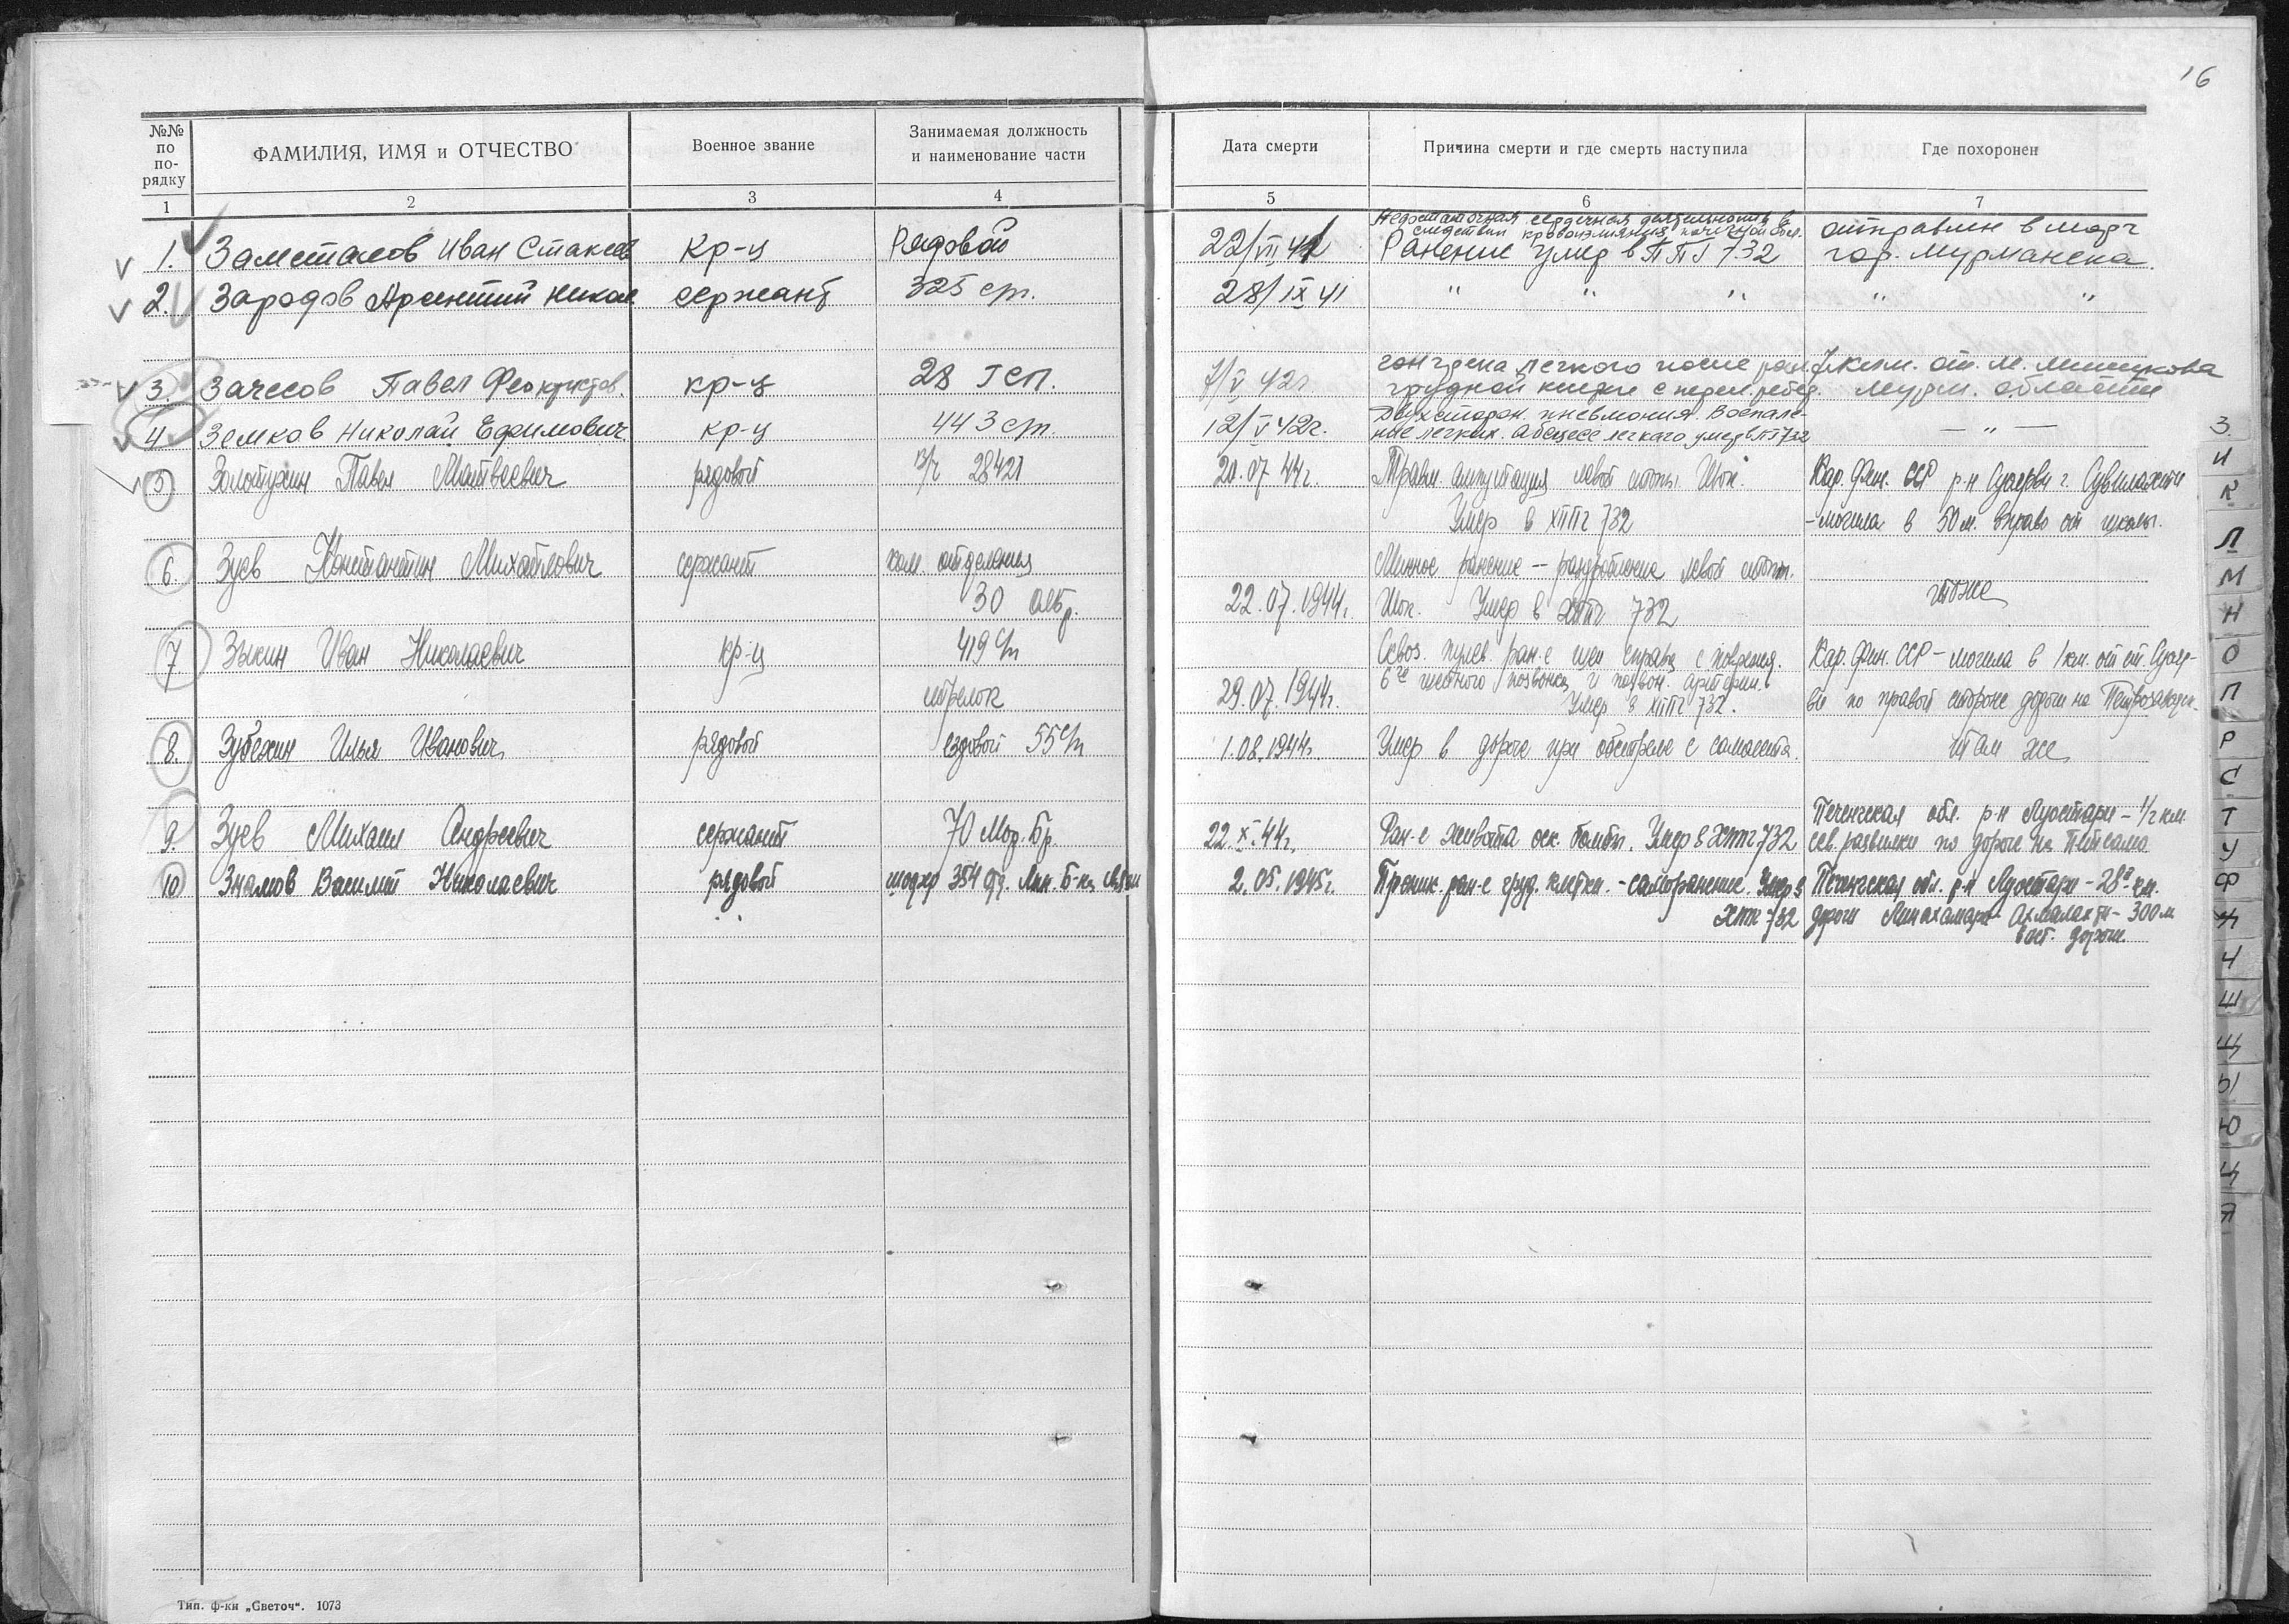 16
№№ по по-рядку
ФАМИЛИЯ, ИМЯ и ОТЧЕСТВО
Военное звание
Занимаемая должность и наименование части
Дата смерти
Причина смерти и где смерть наступила
Где похоронен
1 2 3 4 5 6 7
1. Заметалов Иван Кр-ц Рядовой 22/VII 41
Недостаточная сердечная деятельность в следствии кровоизлияния
Ранение Умер в ППГ 732
отправлен в морг
гор. Мурманска.
2. Зародов Арсентий Никол сержант 325 сп. 28/IX 41 " " " " "
3. Зачесов Павел Феоктистов. кр-ц 28 гсп. 7/V 42г
гангрена легкого после ран.
грудной клетки с перел. ребер.
7 клм. от. м. Мишукова
мурм. области
4 Земков Николай Ефимович кр-ц 443 сп. 12/V 42г.
Двухсторон. пневмония. Воспале-
ние легких. Абсцесс легкого умер в ППГ 732
— " —
5 Золотухин Павел Матвеевич рядовой п/ч 28421 20.07.44г.
Травм. ампутация левой стопы. Шок.
Умер в ХППГ 732
Кар. Фин. ССР р-н Суоярви г. Сувилахти
- могила в 50 м. вправо от школы.
6. Зуев Константин Михайлович сержант ком. отделения
30 отбр.
22.07.1944г.
Минное ранение - раздробление левой стопы.
Шок. Умер в ХППГ 732
тоже
7 Зыкин Иван Николаевич кр-ц 419 сп
стрелок
29.07.1944г.
Сквоз. пулев. ран-е шеи справа с поврежд.
6го шейного позвонка и позвон. артерии.
Умер в ХППГ 732.
Кар. Фин. ССР - могила в 1 км. от ст. Суояр-
ви по правой стороне дороги на Петрозаводск.
8. Зубехин Илья Иванович рядовой ездовой 55 сп 1.08.1944г.
Умер в дороге при обстреле с самолета.
там же
9. Зуев Михаил Андреевич сержант 70 Мор. Бр. 22.X.44г.
Ран-е живота оск. бомбы. Умер в ХППГ 732
Печенгская обл. р-н Луостари - 1/2 км
сев. развилки по дороге на Петсамо
10 Знамов Василий Николаевич рядовой 354 Лин. Б-на связи 2.05.1945г.
Проник. ран-е груд. клетки. - саморанение. Умер в
ХППГ 732
Печенгская обл. р-н Луостари - 28й км.
дороги Линахамари - Ахмалахти - 300 м
вост. дороги.
З
И
К
Л
М
Н
О
П
Р
С
Т
У
Ф
Х
Ч
Ш
Щ
Ы
Ю
Ц
Я
Тип. ф-ки „Светоч". 1073